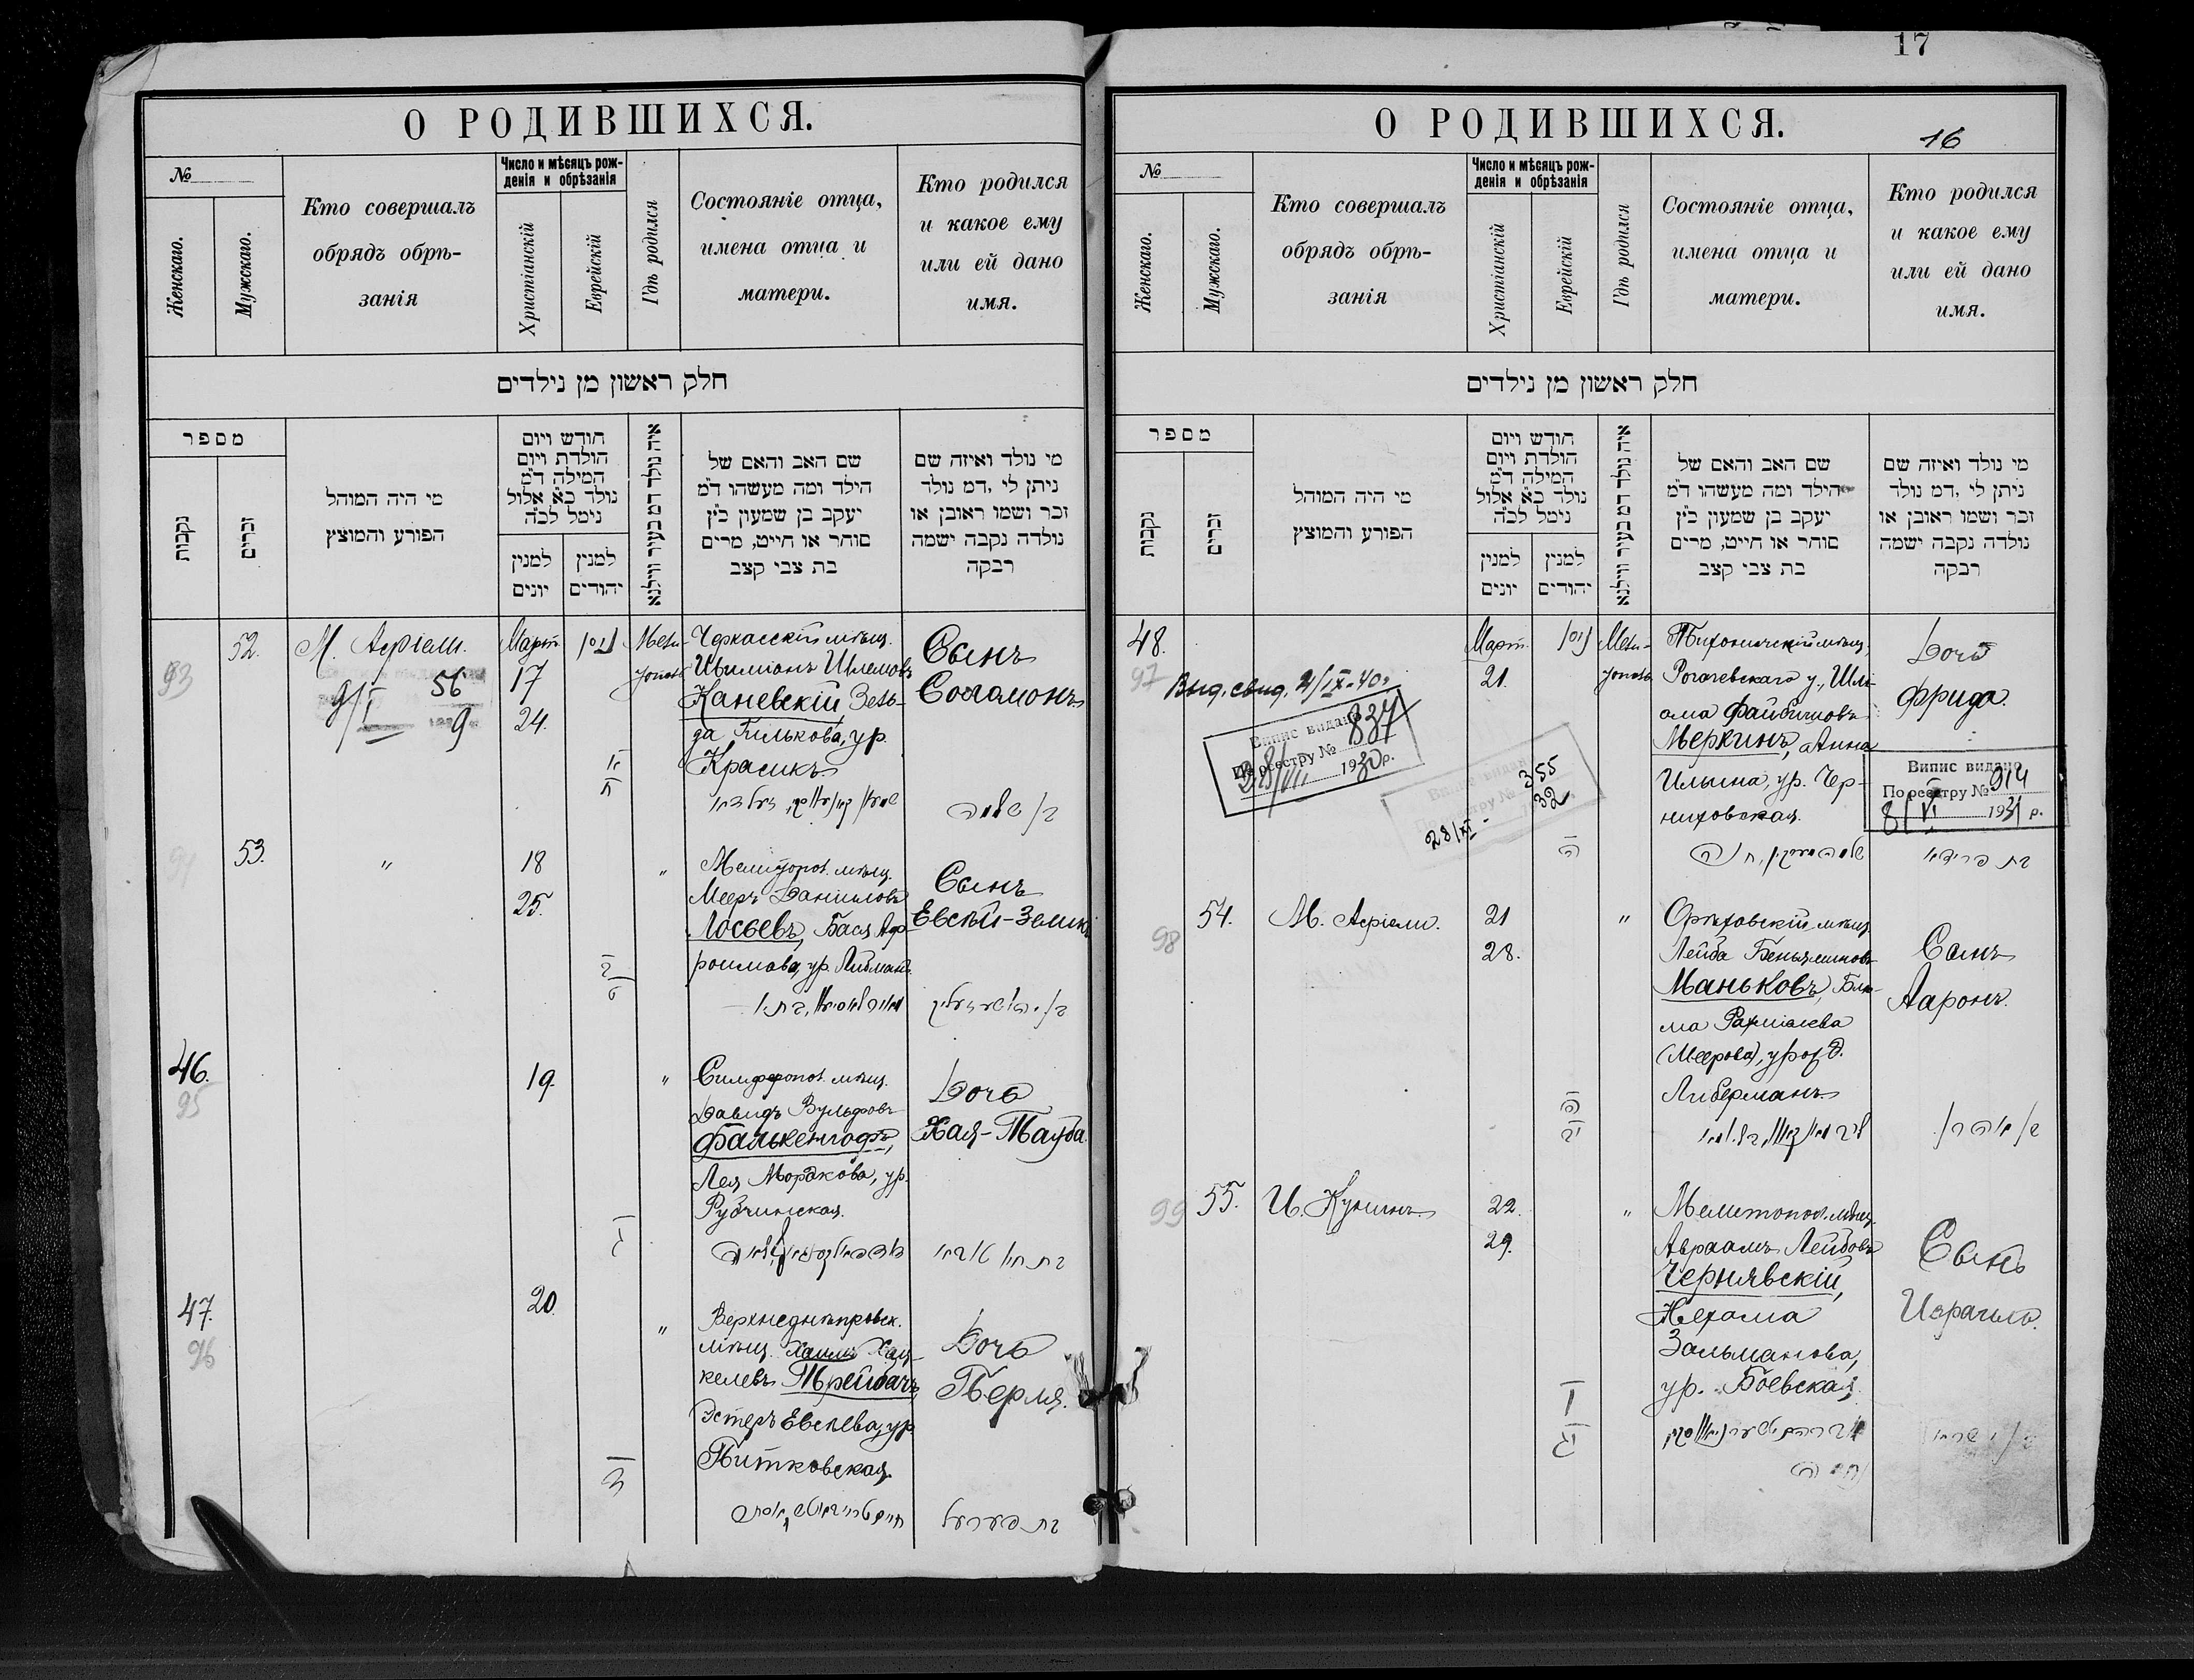 О РОДИВШИХСЯ.
№
Женскаго.
Мужскаго.
Кто совершалъ
обрядъ обрѣ-
занія
Число и мѣсяцъ рож-
денія и обрѣзанія
Христіанскій
Еврейскій
Гдѣ родился
Состояніе отца,
имена отца и
матери.
Кто родился
и какое ему
или ей дано
имя.
חלק ראשון מן נילדים
מספר
נקבות
זכרים
מי היה המוהל
הפורע והמוצץ
חודש ויום
הולדת ויום
המילה ד"מ
נולד כ"א אלול
נימל לכ"ה
למנין
יונים
למנין
יהודים
איה נולד דמ בעיר ווילנא
שם האב והאם של
הילד ומה מעשהו ד"מ
יעקב בן שמעון כ"ץ
סוחר או חייט, מרים
בת צבי קצב
מי נולד ואיזה שם
ניתן לי, דמ נולד
זכר ושמו ראובן או
נולדה נקבה ישמה
רבקה
52.
93
М. Асріели.
9/I 56
9
Март.
17
24.
ניסן
Мели-
Черкасскій мѣщ.
Шлемовъ
Каневскій Зель-
да Билькова, ур.
Красикъ
Сынъ
Соломонъ
בן שלמה
53.
"
18
25.
"
Мелитопол. мѣщ.
Мееръ Даниловъ
Лосьевъ, Бася Аф-
роимова, ур. Либманъ
Сынъ
Евсѣй-Зелик
46.
95
19.
"
Симферопол. мѣщ.
Давидъ Вульфовъ
Фалькенгофъ,
Лея Мордкова, ур.
Рубчинская.
Дочь
Хая-Тауба
47.
96
20.
"
Верхнеднѣпровск.
мѣщ. Хаимъ Хац-
келевъ Трейвачъ,
Эстеръ Евсѣева, ур.
Питковская.
Дочь
Перля.
בת פערעל
17
О РОДИВШИХСЯ.
16
№
Женскаго.
Мужскаго.
Кто совершалъ
обрядъ обрѣ-
занія
Число и мѣсяцъ рож-
денія и обрѣзанія
Христіанскій
Еврейскій
Гдѣ родился
Состояніе отца,
имена отца и
матери.
Кто родился
и какое ему
или ей дано
имя.
חלק ראשון מן נילדים
מספר
נקבות
זכרים
מי היה המוהל
הפורע והמוצץ
חודש ויום
הולדת ויום
המילה ד"מ
נולד כ"א אלול
נימל לכ"ה
למנין
יונים
למנין
יהודים
איה נולד דמ בעיר ווילנא
שם האב והאם של
הילד ומה מעשהו ד"מ
יעקב בן שמעון כ"ץ
סוחר או חייט, מרים
בת צבי קצב
מי נולד ואיזה שם
ניתן לי, דמ נולד
זכר ושמו ראובן או
נולדה נקבה ישמה
רבקה
48.
97
Выд. свид. 2/IX-40г.
Випис видано
По реєстру № 837
1930р.
355
32
28/XI-
Март.
21.
ניסן
Мели-
тополь
мѣщ.
Рогачевскаго у., Шлі-
ома Файбишовъ
Меркинъ, Анна
Ильина, ур. Чер-
ниховская.
Дочь
Фрида.
Випис видано
По реєстру № 914
8/VI 1931 р.
בת פרידא
54.
98
М. Асріели.
21
28.
"
Орѣховскій мѣщ.
Лейба Беньяминовъ
Маньковъ, Блю-
ма Рахмілева
(Меерова), урожд.
Либерманъ
Сынъ
Ааронъ.
בן אהרן
55.
99
И. Кунинъ.
22.
29.
"
Мелитопол. мѣщ.
Авраамъ Лейбовъ
Чернявскій,
Нехама
Зальманова,
ур. Боевская.
Сынъ
Израиль.